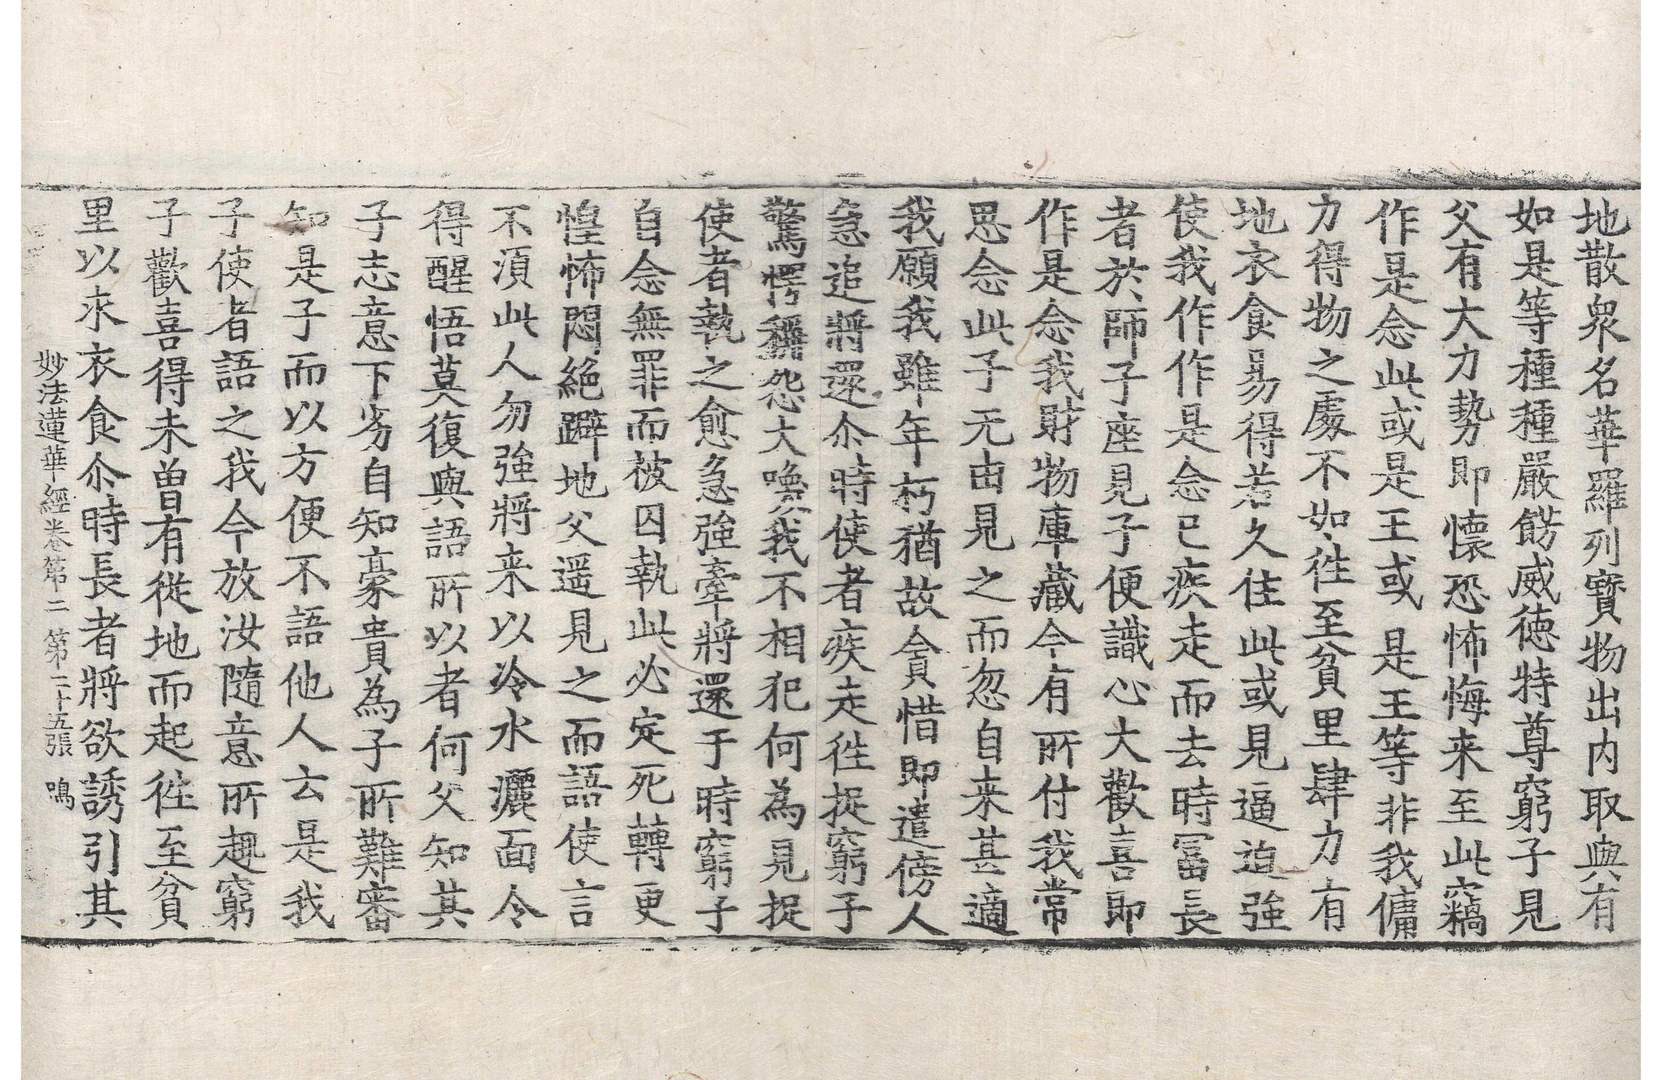 地散衆名華羅列寳物出内取與有
如是等種種嚴餝威德特尊窮子見
父有大力勢即懷恐怖悔来至此竊
作是念此或是王或是王等非我傭
力得物之處不如徃至貧里肆力有
地衣食易得若久住此或見逼迫強
使我作作是念已疾走而去時冨長
者於師子座見子便識心大歡喜即
作是念我財物庫藏今有所付我常
思念此子无由見之而忽自来甚適
我願我雖年朽猶故貪惜即遣傍人
急追將還尒時使者疾走徃捉窮子
驚愕稱怨大喚我不相犯何為見捉
使者執之愈急強牽將還于時窮子
自念無罪而被囚執此必定死轉更
惶怖悶絕躃地父遥見之而語使言
不湏此人勿強將来以冷水灑面令
得醒悟莫復與語所以者何父知其
子志意下劣自知豪貴為子所難審
知是子而以方便不語他人云是我
子使者語之我今放汝隨意所趣窮
子歡喜得未曽有從地而起徃至貧
里以求衣食尒時長者將欲誘引其
妙法蓮華經卷第二 第二十五張 鳴